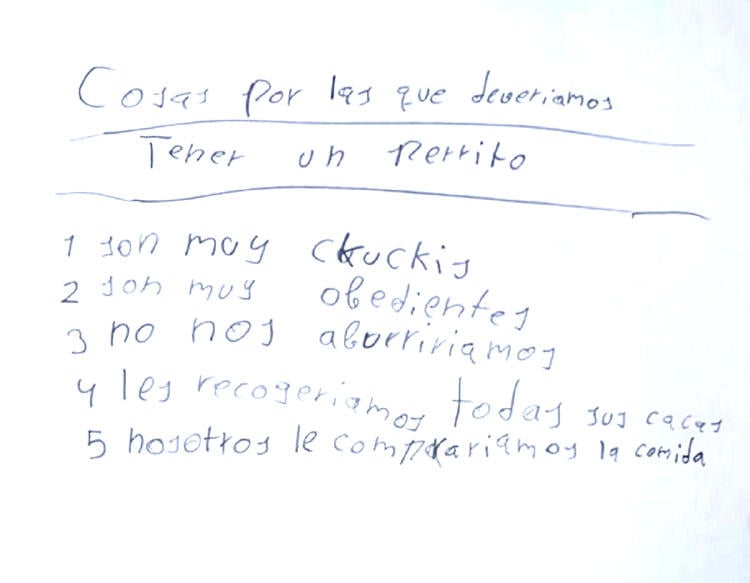 Cosas por las que deveriamos
Tener un Perrito
1 son muy ckuckis
2 son muy obedientes
3 no nos aburririamos
4 les recogeriamos todas sus cacas
5 nosotros le comprariamos la comida